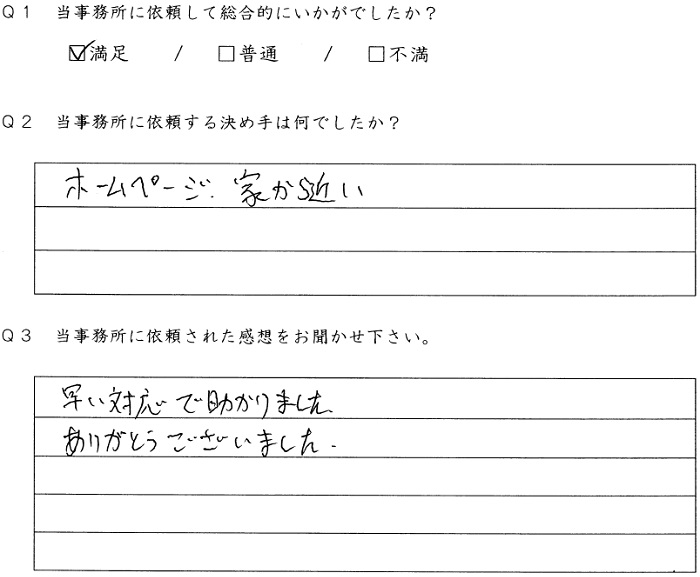 Q1 当事務所に依頼して総合的にいかがでしたか?
☑満足 / □普通 / □不満
Q2 当事務所に依頼する決め手は何でしたか?
ホームページ. 家から近い
Q3 当事務所に依頼された感想をお聞かせ下さい。
早い対応で助かりました
ありがとうございました.